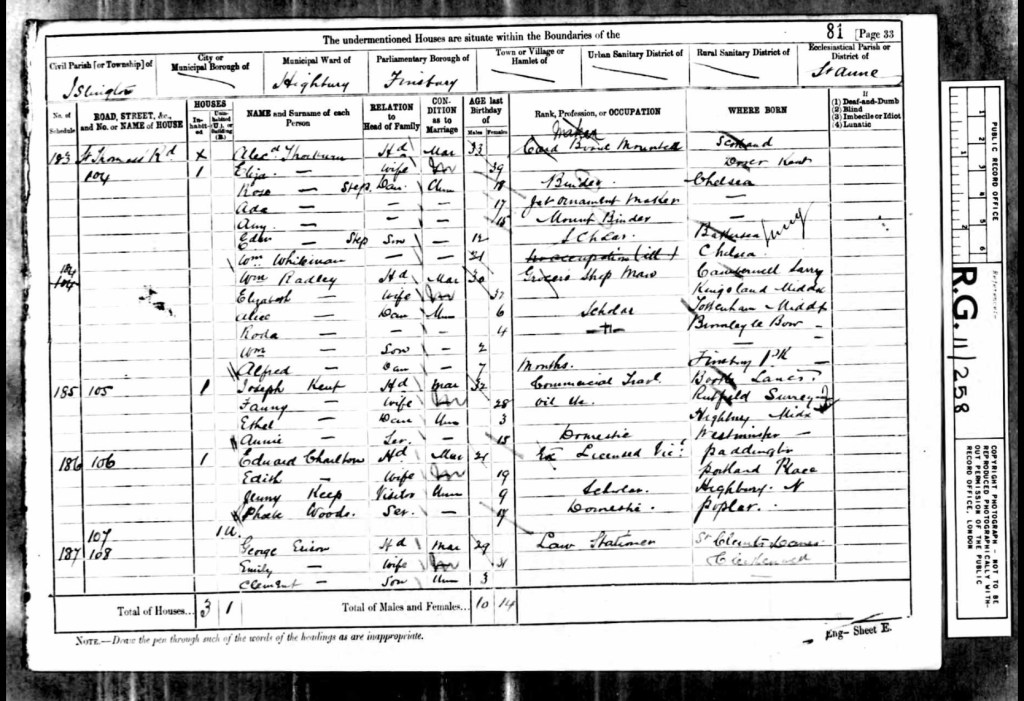 81 [Page 33
The undermentioned Houses are situate within the Boundaries of the
Civil Parish [or Township] of
City or Municipal Borough of
Municipal Ward of
Parliamentary Borough of
Town or Village or Hamlet of
Urban Sanitary District of
Rural Sanitary District of
Ecclesiastical Parish or District of
Islington Highbury Finsbury St Anne
No. of Schedule
ROAD, STREET, &c., and No. or NAME of HOUSE
HOUSES
Inhabited
Uninhabited (U.), or Building (B.)
NAME and Surname of each Person
RELATION to Head of Family
CONDITION as to Marriage
AGE last Birthday of
Males Females
Rank, Profession, or OCCUPATION
WHERE BORN
If
(1) Deaf-and-Dumb
(2) Blind
(3) Imbecile or Idiot
(4) Lunatic
Maker
183 St Thomas' Rd X Alexd Thorburn Hd Mar 33 Card Mounted Scotland
104 1 Eliza — Wife 39 Dover Kent
Rose — Step Dau Unm 18 Binder Chelsea
Ada — — — 17 Jet ornament Maker —
Amy — — — 15 Mount Binder —
Step Son 12 Scholar Battersea
Wm — — 21 no occupation Chelsea
184 104 Wm Radley Hd Mar 30 Grocers Shop Man Camberwell Surry
Elizabeth — Wife 32 Kingsland Middx
Alice — Dau Unm 6 Scholar Tottenham Middx
Roda — — — 4 Bromley le Bow —
Wm — Son — 2 —
Alfred — 7 Months. Finsbury Pk —
185 105 1 Joseph Kent Hd Mar 32 Commercial Travl Lancs
Fanny — Wife 28 oil &c. Surrey
Ethel — Dau Unm 3 Highbury Midx
Annie — Ser. — 15 Domestic Westminster —
186 106 1 Eduard Charlton Hd Mar 21 Ex Licensed Vic. Paddington
Edith — Wife 19 Portland Place
Jenny Keep Visitor Unm 9 Scholar. Highbury N
Woods. Ser. — 17 Domestic. Poplar
107 1 U.
187 108 George Hd Mar 29 Law Stationer
Emily — Wife 31 Clerkenwell
Clement — Son Unm 3
Total of Houses... 3 1 Total of Males and Females... 10 14
NOTE.—Draw the pen through such of the words of the headings as are inappropriate.
Eng— Sheet E.
PUBLIC RECORD OFFICE
1 2 3 4 5 6
Reference:-
R.G. 11/258
COPYRIGHT PHOTOGRAPH - NOT TO BE REPRODUCED PHOTOGRAPHICALLY WITHOUT PERMISSION OF THE PUBLIC RECORD OFFICE, LONDON